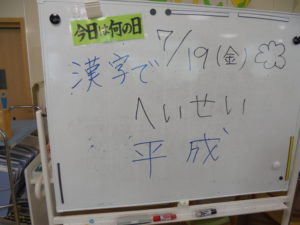 今日は何の日
7/19(金)
漢字で
へいせい
平成